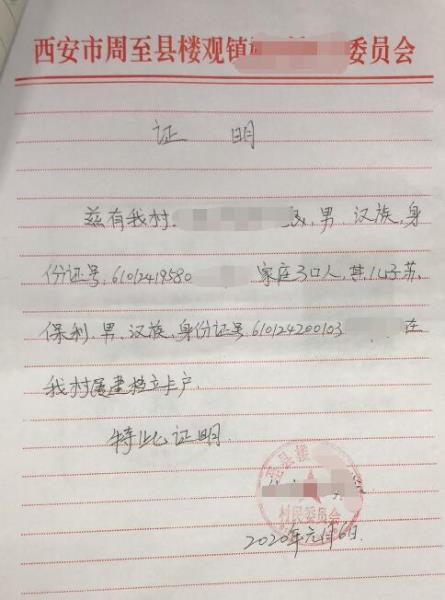 西安市周至县楼观镇 委员会
证 明
兹有我村 男,汉族,身
份证号,6101241958０ 家庭3口人,其儿子苏
保利,男,汉族,身份证号610124200103 在
我村属建档立卡户.
特此证明.
县楼
村民委员会
2020年元月6日.